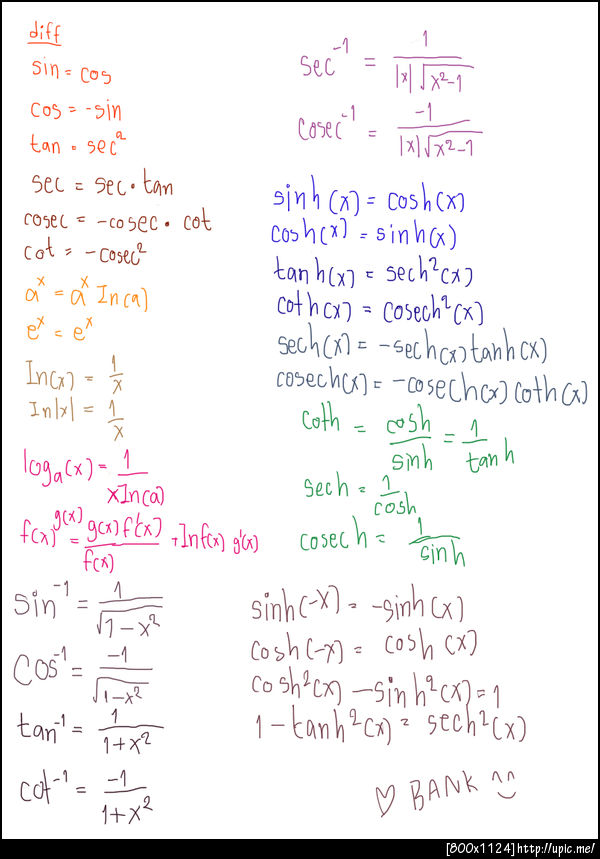 diff
sin = cos
cos = -sin
tan = sec²
sec = sec · tan
cosec = -cosec · cot
cot = -cosec²
aˣ = aˣ In(a)
eˣ = eˣ
In(x) = 1/x
In|x| = 1/x
logₐ(x) = 1/xIn(a)
f(x)^g(x) = g(x) f'(x)/f(x) + Inf(x) g'(x)
sin⁻¹ = 1/√1-x²
cos⁻¹ = -1/√1-x²
tan⁻¹ = 1/1+x²
cot⁻¹ = -1/1+x²
sec⁻¹ = 1/|x|√x²-1
cosec⁻¹ = -1/|x|√x²-1
sinh(x) = cosh(x)
cosh(x) = sinh(x)
tanh(x) = sech²(x)
coth(x) = cosech²(x)
sech(x) = -sech(x) tanh(x)
cosech(x) = -cosech(x) coth(x)
coth = cosh/sinh = 1/tanh
sech = 1/cosh
cosech = 1/sinh
sinh(-x) = -sinh(x)
cosh(-x) = cosh(x)
cosh²(x) - sinh²(x) = 1
1 - tanh²(x) = sech²(x)
♡ BANK ^^
[800x1124]http://upic.me/